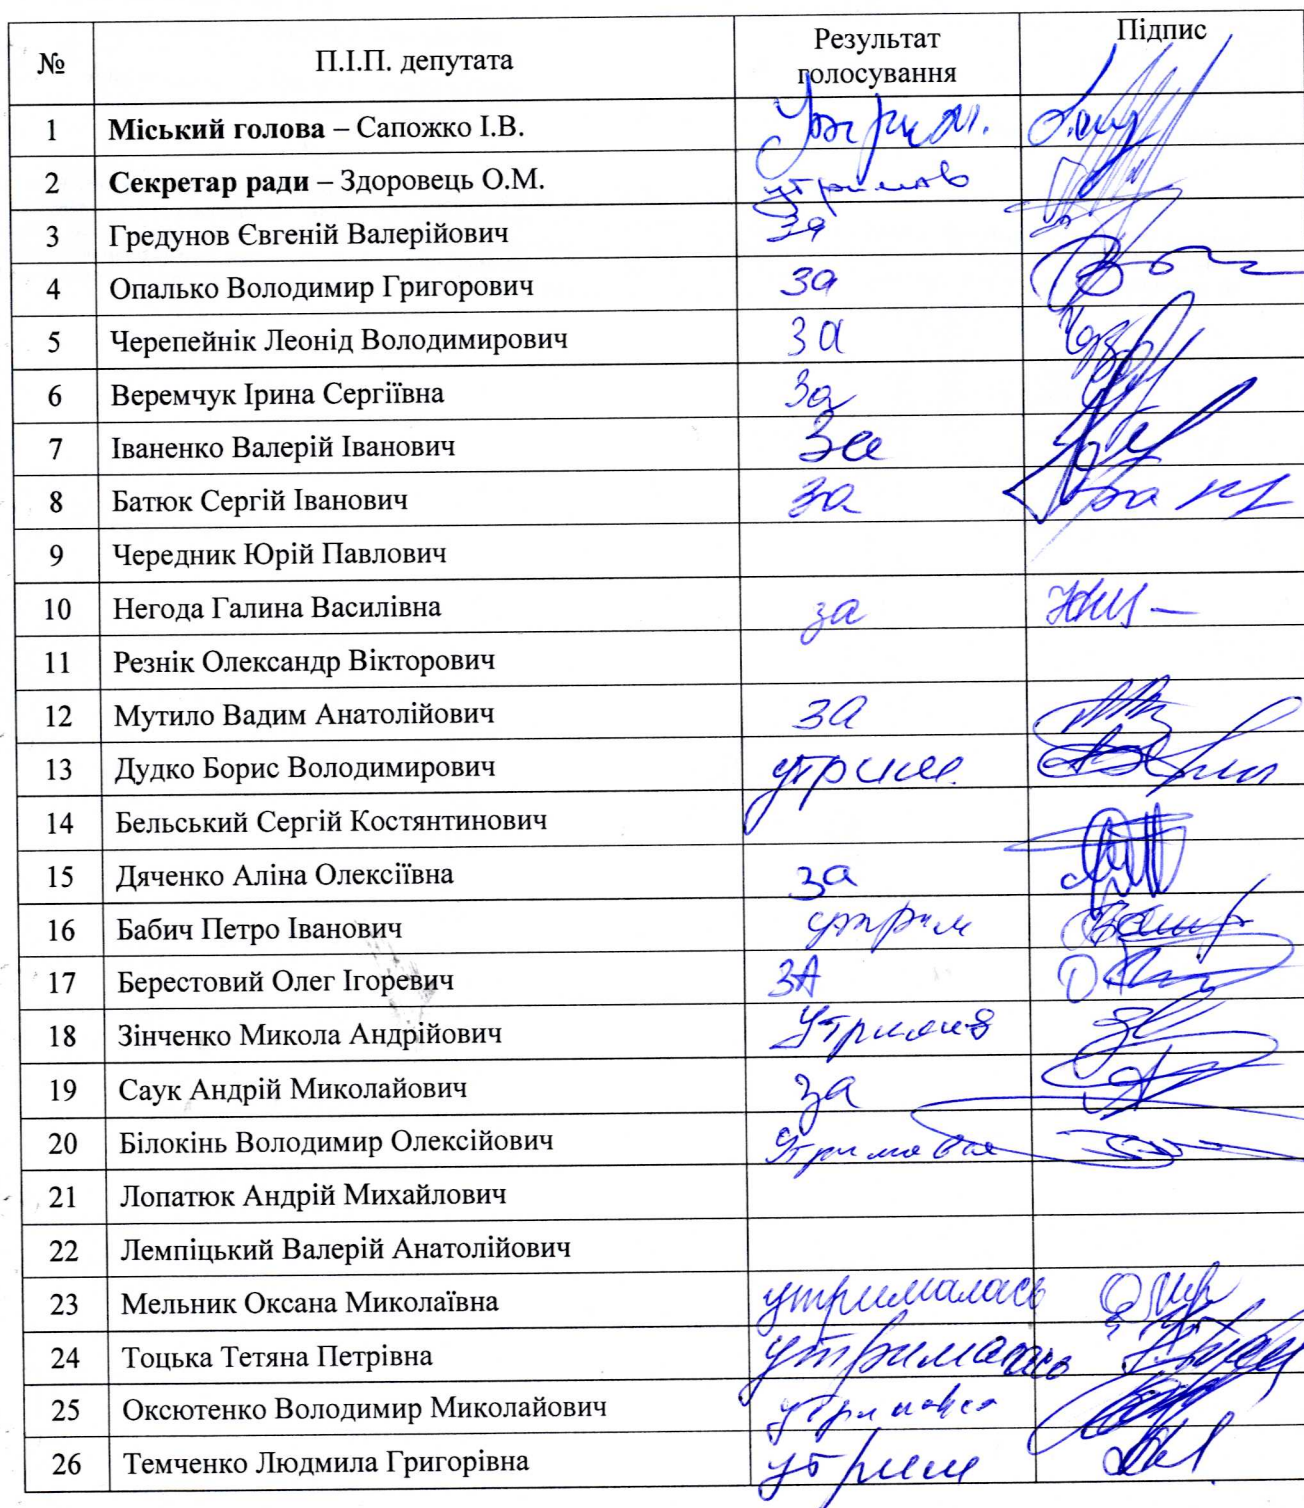 № П.І.П. депутата Результат голосування Підпис
1 Міський голова – Сапожко І.В. Утрим.
2 Секретар ради – Здоровець О.М.
3 Гредунов Євгеній Валерійович За
4 Опалько Володимир Григорович за
5 Черепейнік Леонід Володимирович за
6 Веремчук Ірина Сергіївна За
7 Іваненко Валерій Іванович За
8 Батюк Сергій Іванович За
9 Чередник Юрій Павлович
10 Негода Галина Василівна за
11 Резнік Олександр Вікторович
12 Мутило Вадим Анатолійович за
13 Дудко Борис Володимирович утрим.
14 Бельський Сергій Костянтинович
15 Дяченко Аліна Олексіївна за
16 Бабич Петро Іванович утрим
17 Берестовий Олег Ігоревич ЗА
18 Зінченко Микола Андрійович Утримав
19 Саук Андрій Миколайович за
20 Білокінь Володимир Олексійович Утримався
21 Лопатюк Андрій Михайлович
22 Лемпіцький Валерій Анатолійович
23 Мельник Оксана Миколаївна утрималась
24 Тоцька Тетяна Петрівна утрималась
25 Оксютенко Володимир Миколайович утримався
26 Темченко Людмила Григорівна утрим